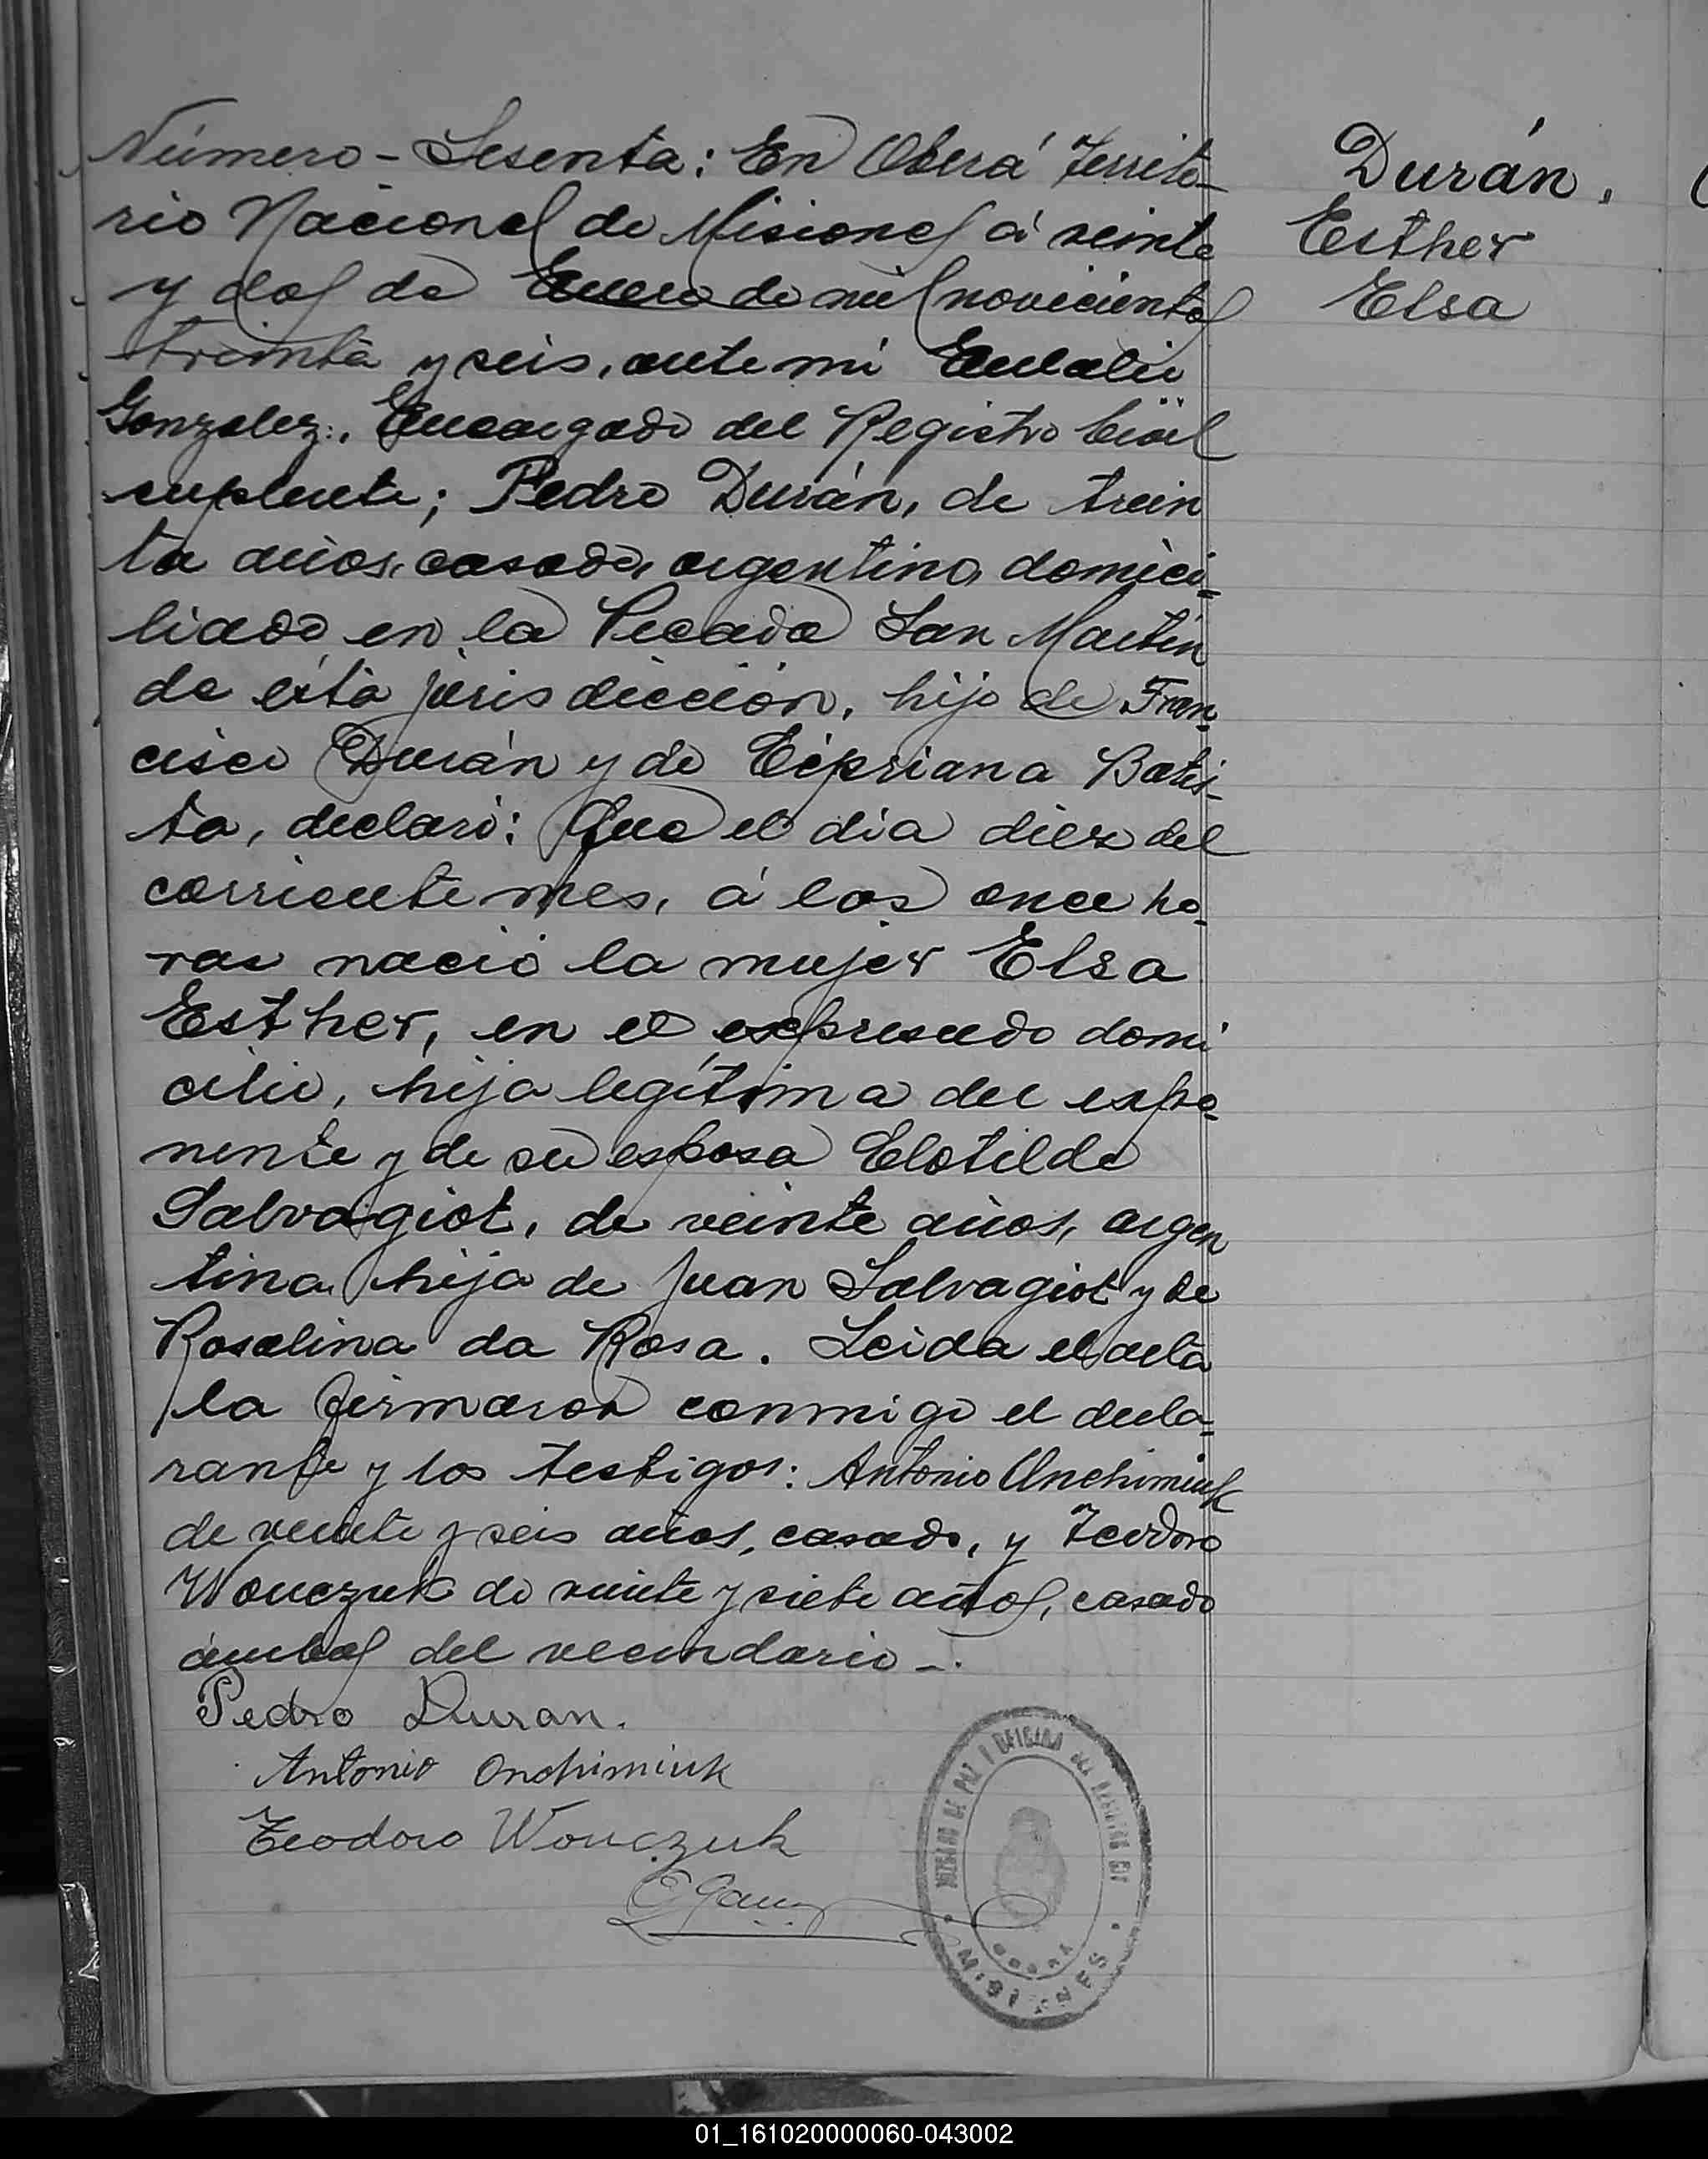 Número - Sesenta: En Oberá Territo-
rio Nacional de Misiones á veinte
y dos de Enero de mil novecientos
treinta y seis, ante mí Eulalio
Gonzalez, Encargado del Registro Civil
suplente; Pedro Durán, de trein
ta años, casado, argentino, domici-
liado en la Picada San Martín
de ésta jurisdicción, hijo de Fran-
cisco Durán y de Cipriana Batis-
ta, declaró: Que el día diez del
corriente mes, á las once ho-
ras nació la mujer Elsa
Esther, en el expresado domi
cilio, hija legítima del expo-
nente y de su esposa Clotilde
Salvagiot, de veinte años, argen
tina, hija de Juan Salvagiot y de
Rosalina da Rosa. Leida el acta
la firmaron conmigo el decla-
rante y los testigos: Antonio Onchimiuk
de veinte y seis años, casado, y Teodoro
Wouczuk de veinte y siete años, casado
ámbos del vecindario -.
Pedro Duran.
Antonio Onchimiuk
Teodoro Wouczuk
Durán,
Esther
Elsa
JUZGADO DE PAZ Y OFICINA DEL REGISTRO
MISIONES
01_161020000060-043002